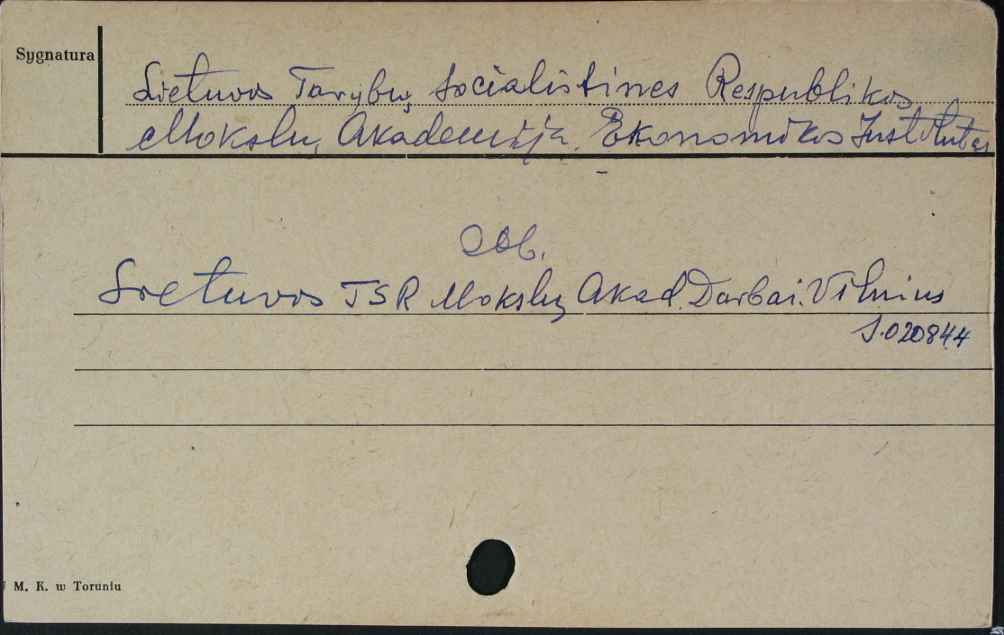 Sygnatura
Lietuvos Tarybų Socialistines Respublikos
Mokslu Akademija. Ekonomikos Institutas
Ob.
Lietuvos TSR Mokslų Akad. Darbai. Vilnius
S.020844
U M. K. w Toruniu